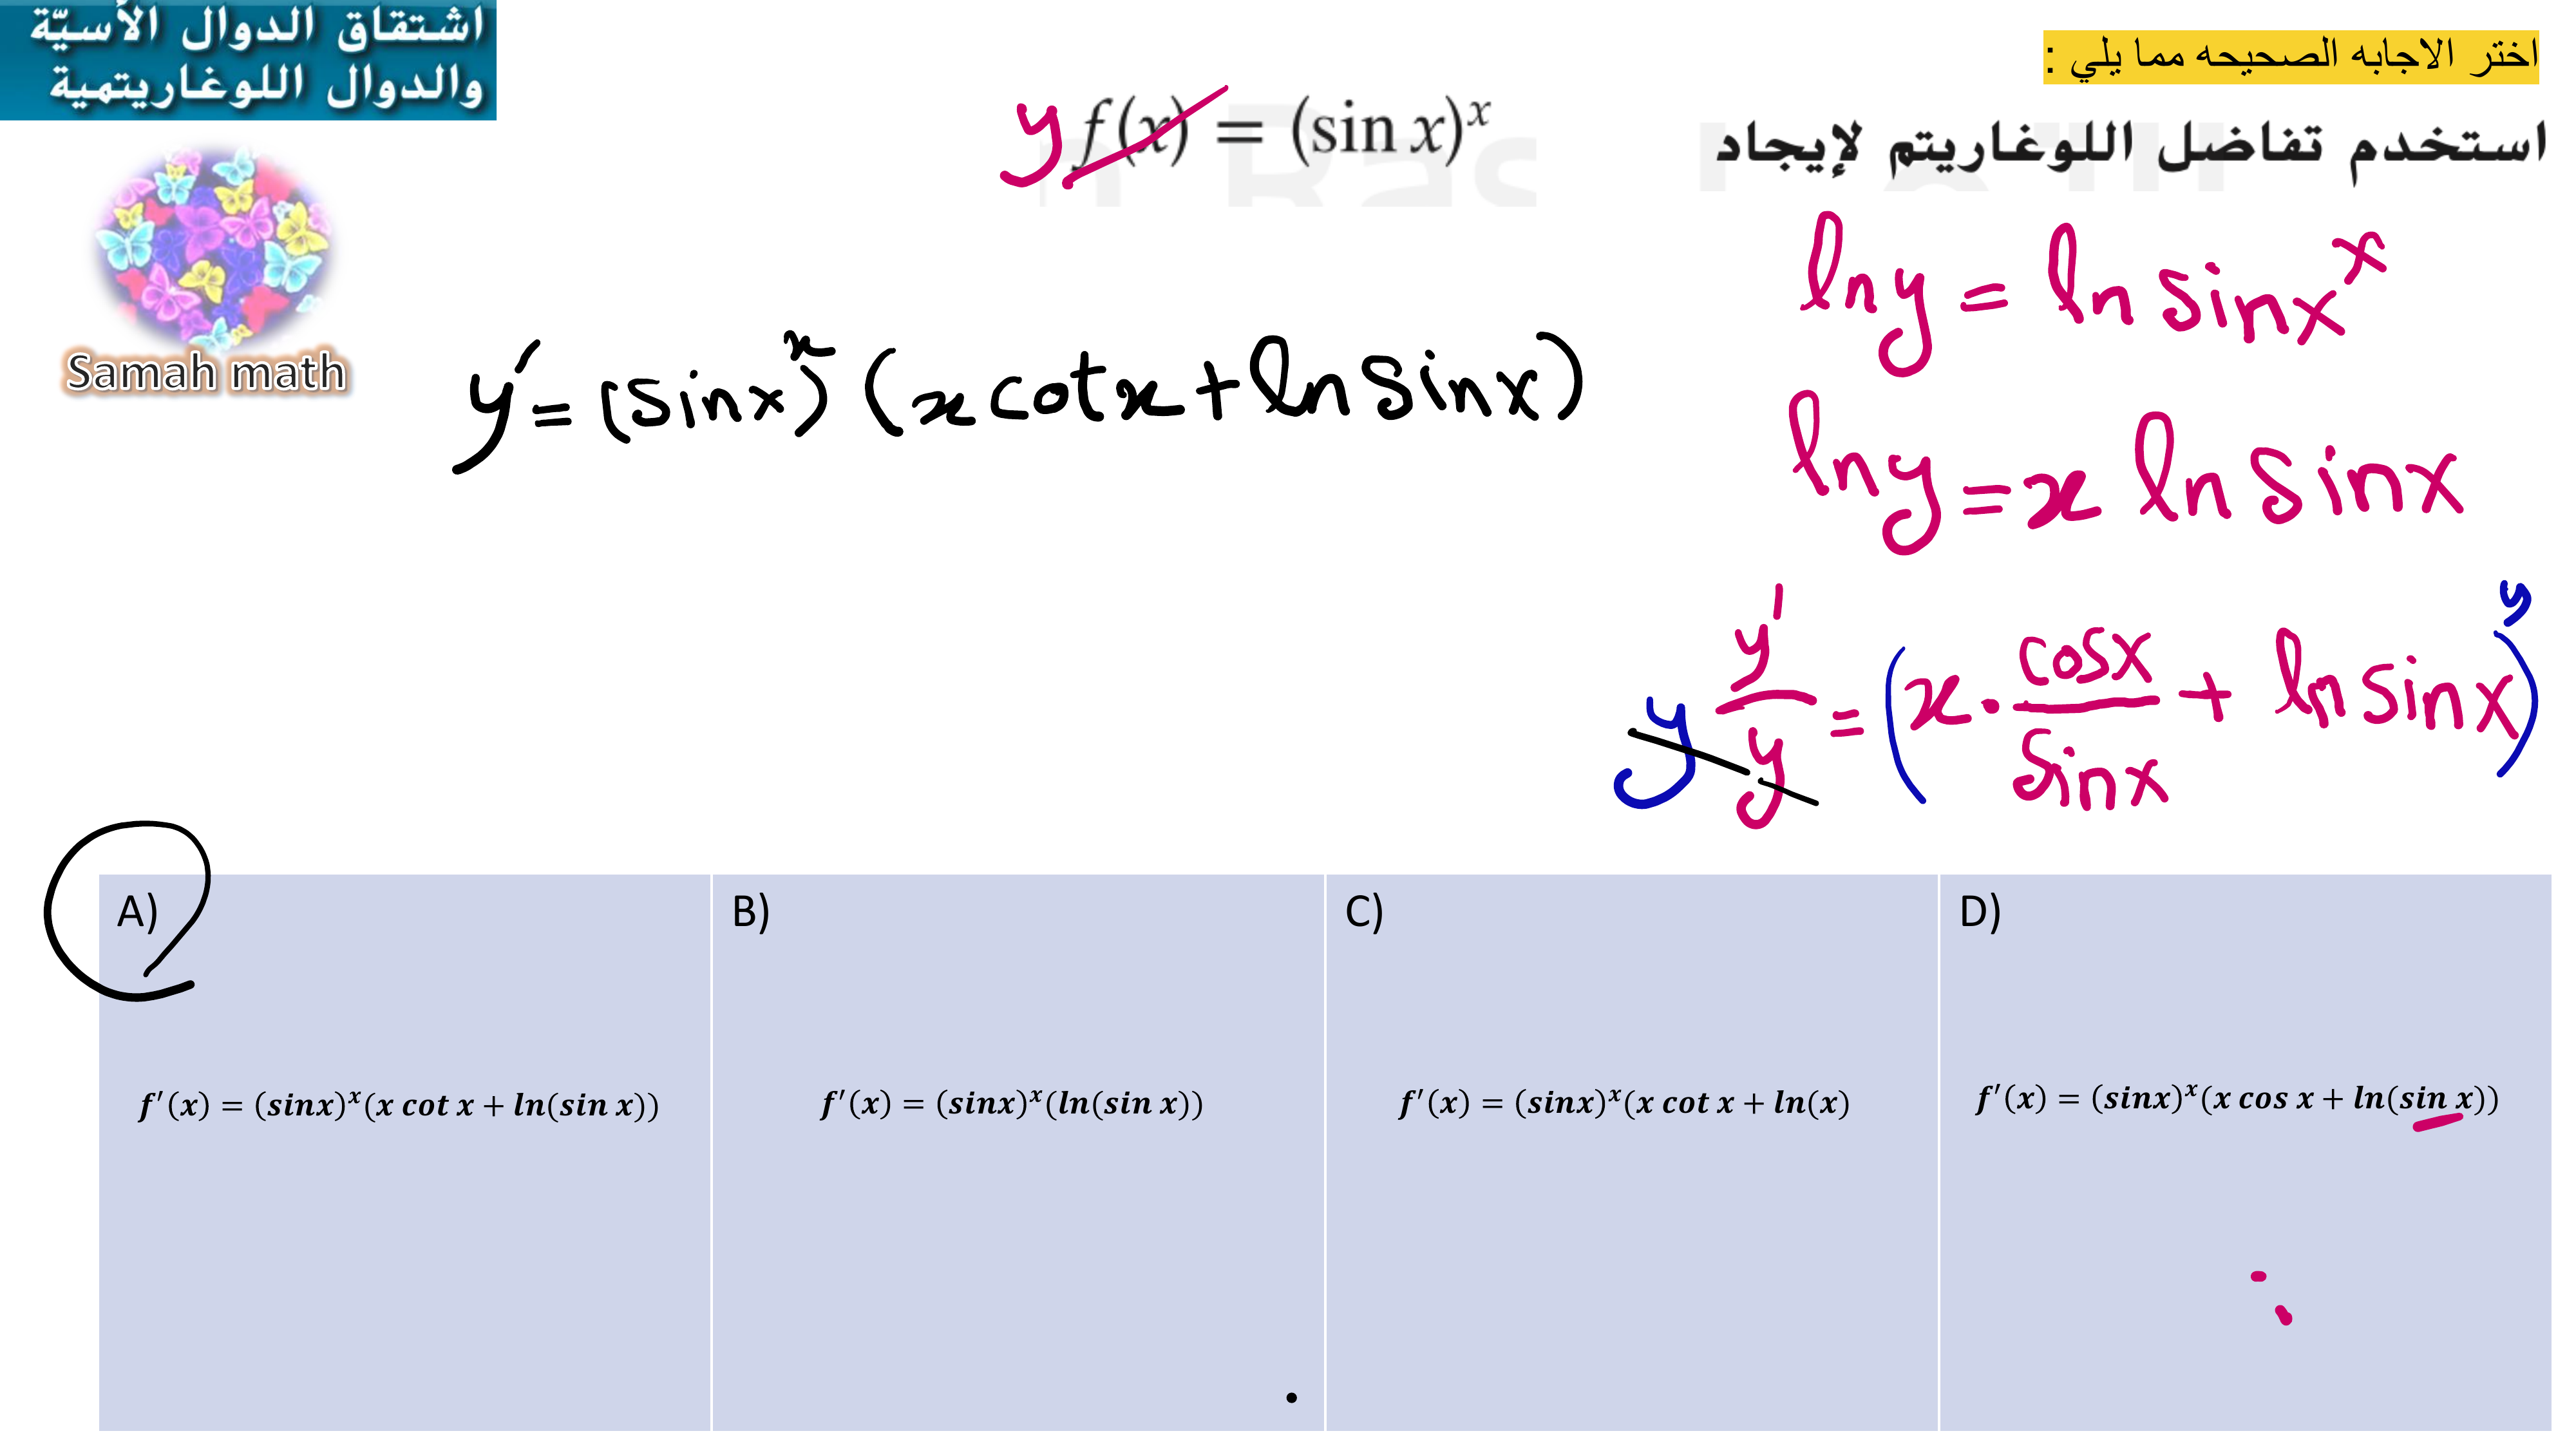 اشتقاق الدوال الأسيّة
والدوال اللوغاريتمية
Samah math
اختر الاجابه الصحيحه مما يلي :
استخدم تفاضل اللوغاريتم لإيجاد
y f(x) = (sin x)^x
ln y = ln sin x^x
ln y = x ln sin x
y y'/y = (x · cos x/sin x + ln sin x) y
y' = (sin x)^x (x cot x + ln sin x)
A)
f′(x) = (sinx)^x(x cot x + ln(sin x))
B)
f′(x) = (sinx)^x(ln(sin x))
C)
f′(x) = (sinx)^x(x cot x + ln(x)
D)
f′(x) = (sinx)^x(x cos x + ln(sin x))